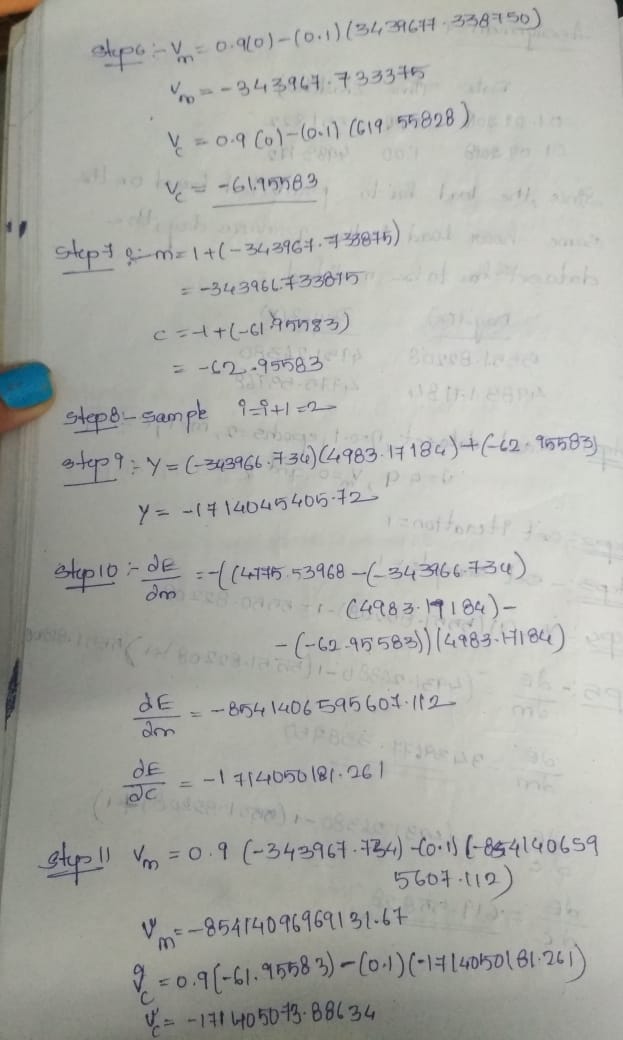 Step6:- Vm = 0.9(0)-(0.1)(3439677.338750)
Vm = -343967.733375
Vc = 0.9(0)-(0.1)(619.55828)
Vc = -61.95583
Step7:- m=1+(-343967.733875)
= -343966.733875
c = -1+(-61.95583)
= -62.95583
Step8:- sample i=i+1=2
step9:- Y=(-343966.734)(4983.17184)+(-62.95583)
Y= -1714045405.72
Step10:- dE/dm = -((4775.53968-(-343966.734)
(4983.17184)-
-(-62.95583))(4983.17184)
dE/dm = -8541406595607.112
dE/dc = -1714050181.261
Step11 Vm = 0.9(-343967.734)-(0.1)(-854140659
5607.112)
Vm = -854140969691 31.67
Vc = 0.9(-61.95583)-(0.1)(-1714050181.261)
Vc = -171405073.88634